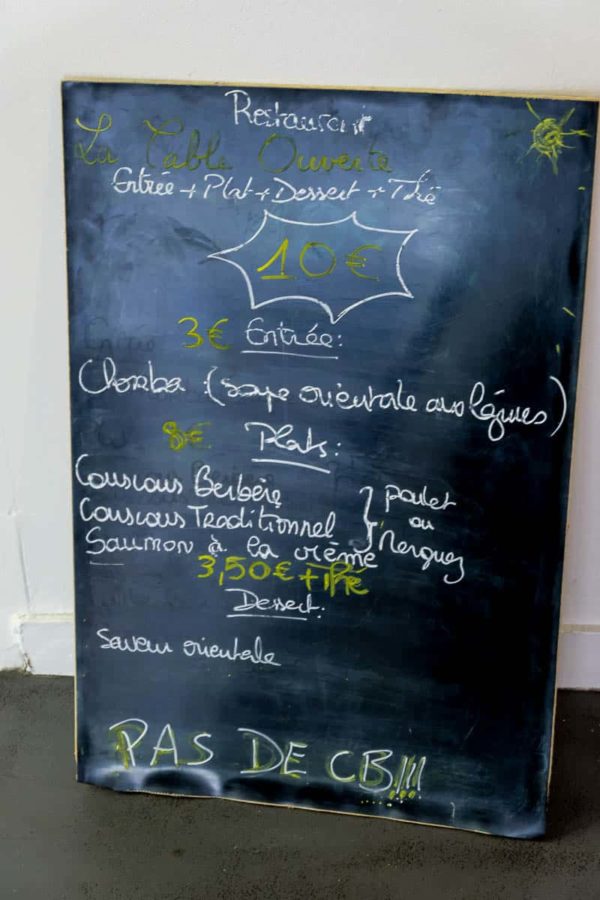 Restaurant
La Table Ouverte
Entrée + Plat + Dessert + Thé
10€
3€ Entrée:
Chorba: (soupe orientale aux légumes)
8€ Plats:
Couscous Berbère
Couscous Traditionnel
} poulet ou Merguez
Saumon à la crème
3,50€ + thé
Dessert:
Saveur orientale
PAS DE CB!!!